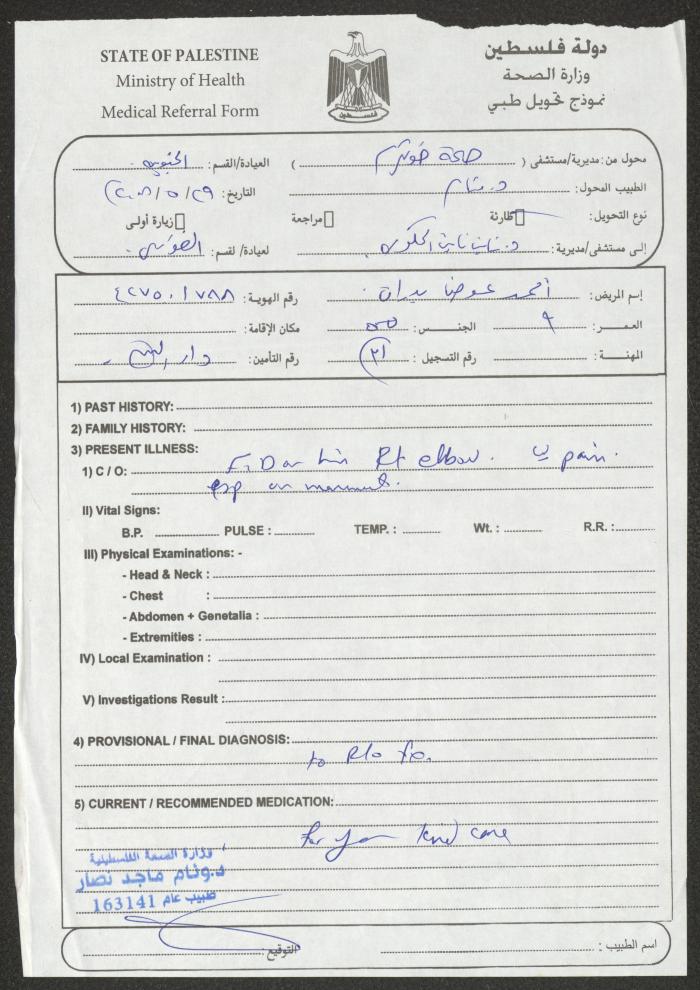 STATE OF PALESTINE
Ministry of Health
Medical Referral Form
دولة فلسطين
وزارة الصحة
نموذج تحويل طبي
فلسطين
محول من: مديرية/مستشفى ( صحة ) العيادة/القسم:
الطبيب المحول: د. التاريخ:
نوع التحويل: طارئة مراجعة زيارة أولى
إلى مستشفى/مديرية: د. لعيادة/ لقسم:
إسم المريض: أحمد عوض رقم الهوية:
العمـــر: ٩ الجنـــس: مكان الإقامة:
المهنة: رقم التسجيل: رقم التأمين: دار
1) PAST HISTORY:
2) FAMILY HISTORY:
3) PRESENT ILLNESS:
1) C / O: Rt elbow. pain.
esp on
II) Vital Signs:
B.P. PULSE : TEMP. : Wt. : R.R. :
III) Physical Examinations: -
- Head & Neck :
- Chest :
- Abdomen + Genetalia :
- Extremities :
IV) Local Examination :
V) Investigations Result :
4) PROVISIONAL / FINAL DIAGNOSIS:
to R/o
5) CURRENT / RECOMMENDED MEDICATION:
for your kind care
وزارة الصحة الفلسطينية
د.وئام ماجد نصار
طبيب عام 163141
اسم الطبيب : التوقيع: